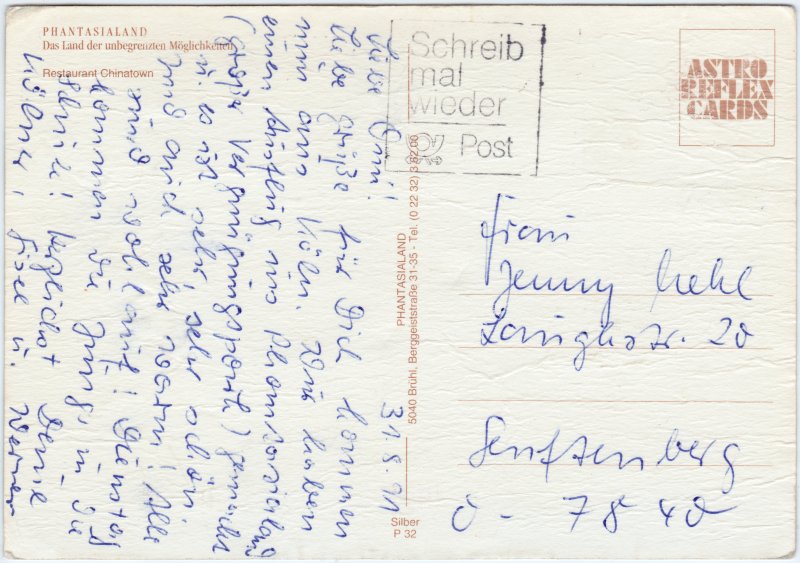 PHANTASIALAND
Das Land der unbegrenzten Möglichkeiten
Restaurant Chinatown
Schreib
mal
wieder
Post
ASTRO
REFLEX
CARDS
31.8.91
Liebe Omi!
Liebe Grüße für Dich kommen
nun aus Köln. Wir haben
einen Ausflug ins Phantasialand
(große Vergnügungspark) gemacht
u. es ist sehr, sehr schön.
Und auch sehr warm! Alle
sind wohlauf! Dienstag
kommen die Jungs in die
Schule! Herzlichst Deine
u. Werner
PHANTASIALAND
5040 Brühl, Berggeiststraße 31-35 - Tel. (0 22 32) 3 62 00
Silber
P 32
Frau
Jenny
20
Senftenberg
O - 7840